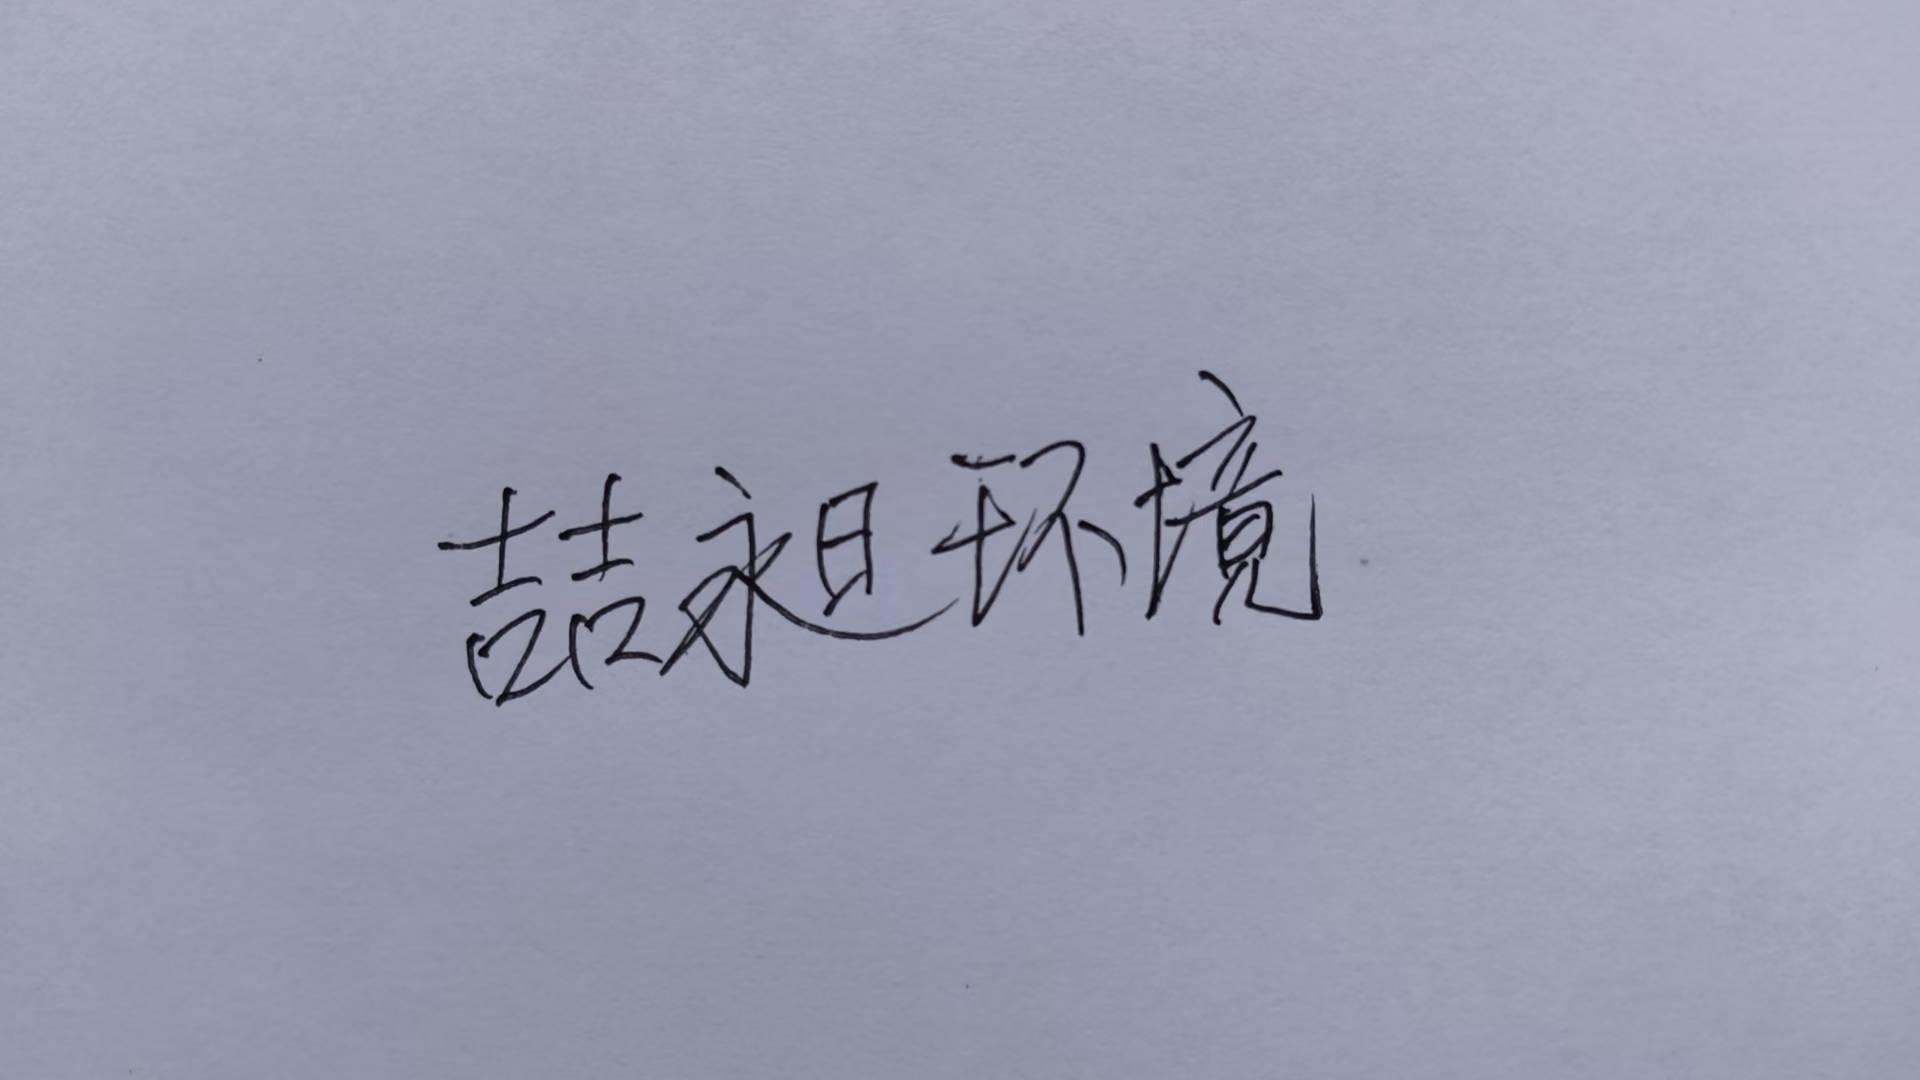 喆昶环境